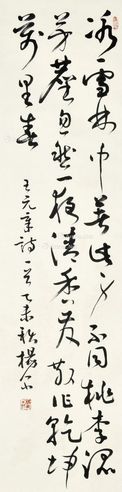 冰雪林中著此身不同桃李混
芳塵忽然一夜清香發散作乾坤
萬里春
王元章詩一首乙未秋楊